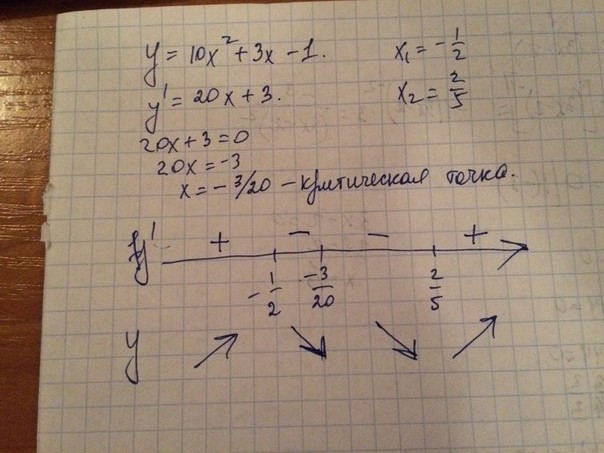 y = 10x² + 3x - 1.
x₁ = -1/2
y' = 20x + 3.
x₂ = 2/5
20x + 3 = 0
20x = -3
x = - 3/20 - критическая точка.
y' + - - +
-1/2 -3/20 2/5
y ↗ ↘ ↘ ↗